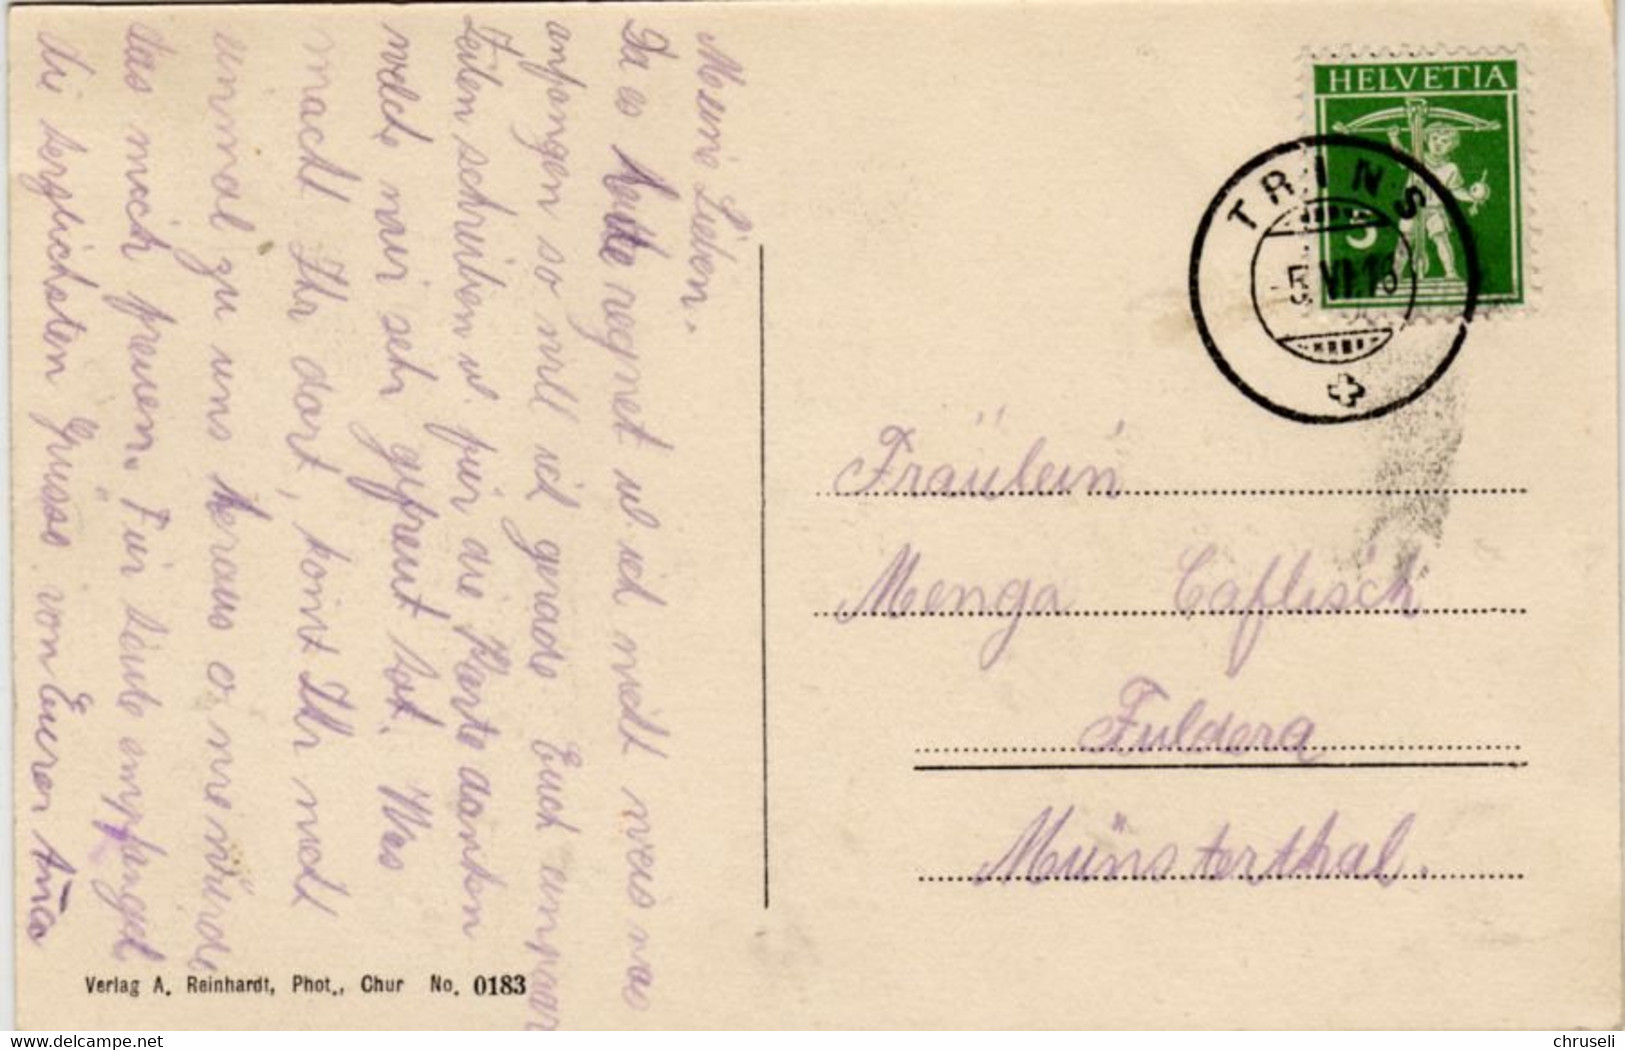 Meine Lieben.
Da es heute regnet u. ich nicht weis was
anfangen so will ich grade Euch ein paar
Zeilen schreiben u. für die Karte danken
welche mir sehr gefreut hat. Was
macht Ihr dort, komt Ihr nicht
einmal zu uns heraus o wie würde
das mich freuen. Für heute empfanget
die herzlichsten Grüsse von Eurer
Verlag A. Reinhardt, Phot., Chur No. 0183
HELVETIA
5
TRINS
-5.VI.1
Fräulein
Menga Caflisch
Fuldera
Münsterthal.
chruseli
delcampe.net